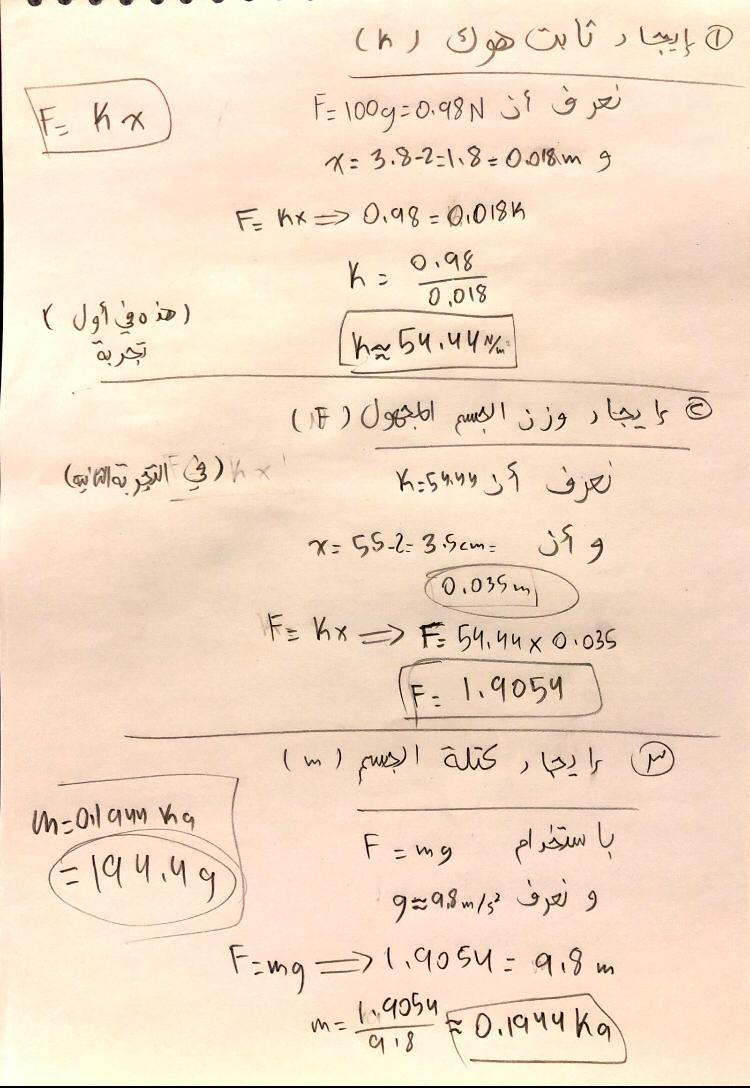 ① إيجاد ثابت هوك (K)
F= Kx
نعرف أن F=100g=0.98N
و x= 3.8-2=1.8=0.018m
F= Kx ⟹ 0.98=0.018K
K= 0.98/0.018
K≈54.44 N/m
(هذه في أول تجربة)
② إيجاد وزن الجسم المجهول (F)
(في التجربة الثانية)
نعرف أن K=54.44
و أن x= 55-2=3.5cm=
0.035m
F= Kx ⟹ F= 54.44 x 0.035
F= 1.9054
③ إيجاد كتلة الجسم (m)
باستخدام F=mg
و نعرف g≈9.8m/s²
F=mg ⟹ 1.9054= 9.8 m
m= 1.9054/9.8 ≈ 0.1944 Kg
m=0.1944 Kg
=194.4g